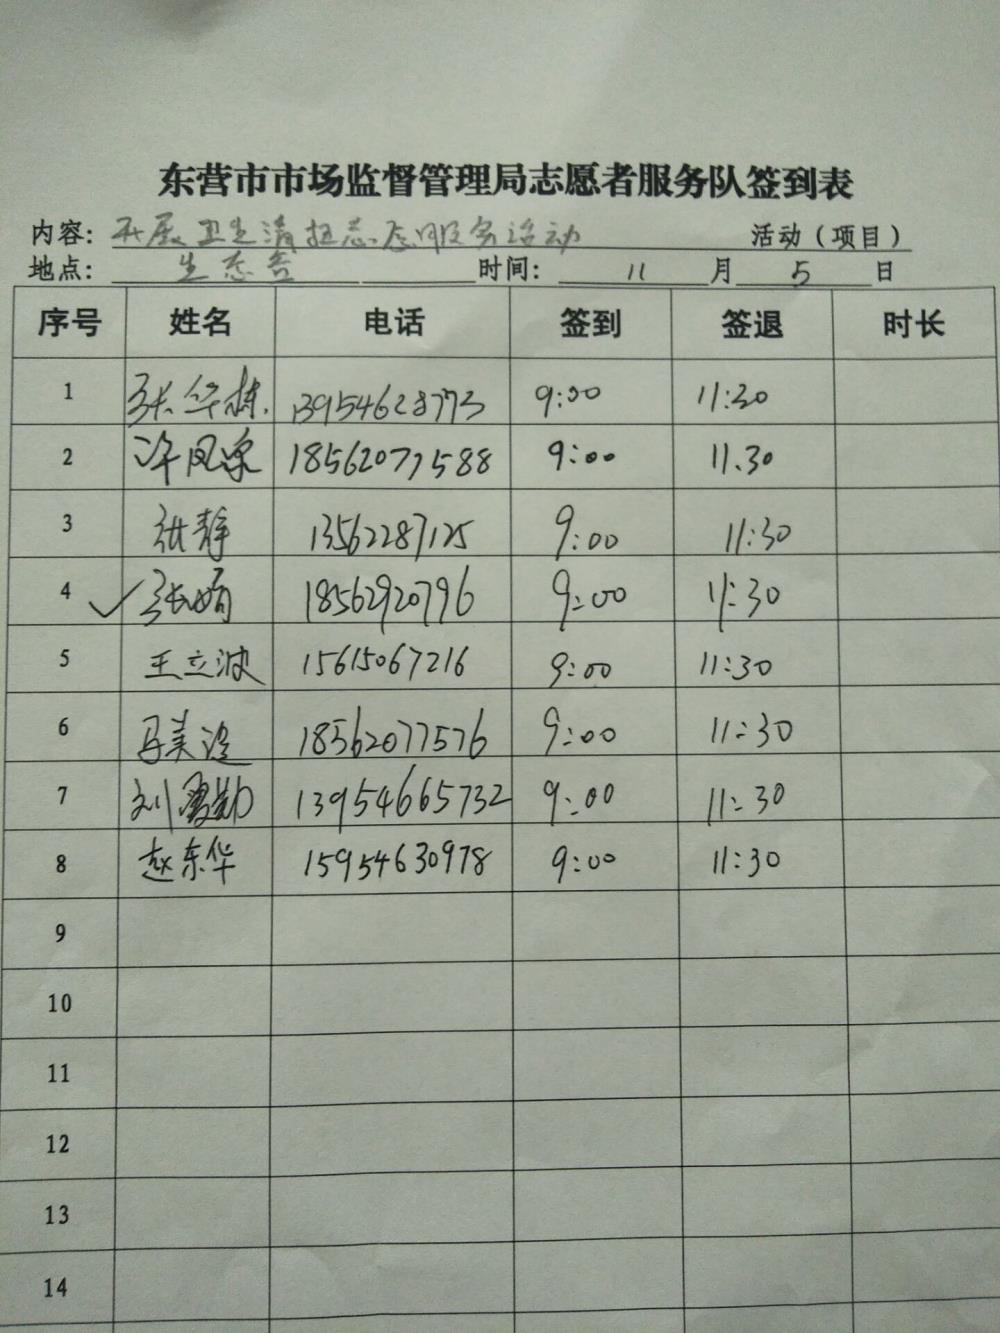 东营市市场监督管理局志愿者服务队签到表
内容: 开展卫生清扫志愿服务活动 活动（项目）
地点: 生态 时间: 11 月 5 日
序号 姓名 电话 签到 签退 时长
1 张华栋 13954628773 9:00 11:30
2 许凤 18562077588 9:00 11.30
3 张静 13562287125 9:00 11:30
4 ✓ 张娟 18562920796 9:00 11:30
5 王立波 15615067216 9:00 11:30
6 美 18562077576 9:00 11:30
7 刘 13954665732 9:00 11:30
8 赵东华 15954630978 9:00 11:30
9
10
11
12
13
14